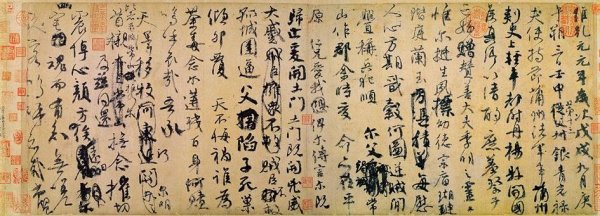 維乾元元年歲次戊戌九月庚
午朔三日壬申第十三叔銀青光祿
夫使持節蒲州諸軍事蒲州
刺史上輕車都尉丹楊縣開國
侯真卿以清酌庶羞祭于
亡姪贈贊善大夫季明之靈曰
惟爾挺生夙標幼德宗廟瑚璉
階庭蘭玉每慰
人心方期戩穀何圖逆賊閒
釁稱兵犯順爾父竭誠常
山作郡余時受命亦在平
原仁兄愛我俾爾傳言爾既
歸止爰開土門土門既開凶威
大蹙賊臣不救
孤城圍逼父陷子死巢
傾卵覆天不悔禍誰為
荼毒念爾遘殘百身何贖
嗚呼哀哉吾承
天澤移牧河關泉明
首櫬及茲同還撫念摧切
震悼心顏方俟遠日
卜爾幽宅魂而有知無嗟
久客嗚呼哀哉尚饗